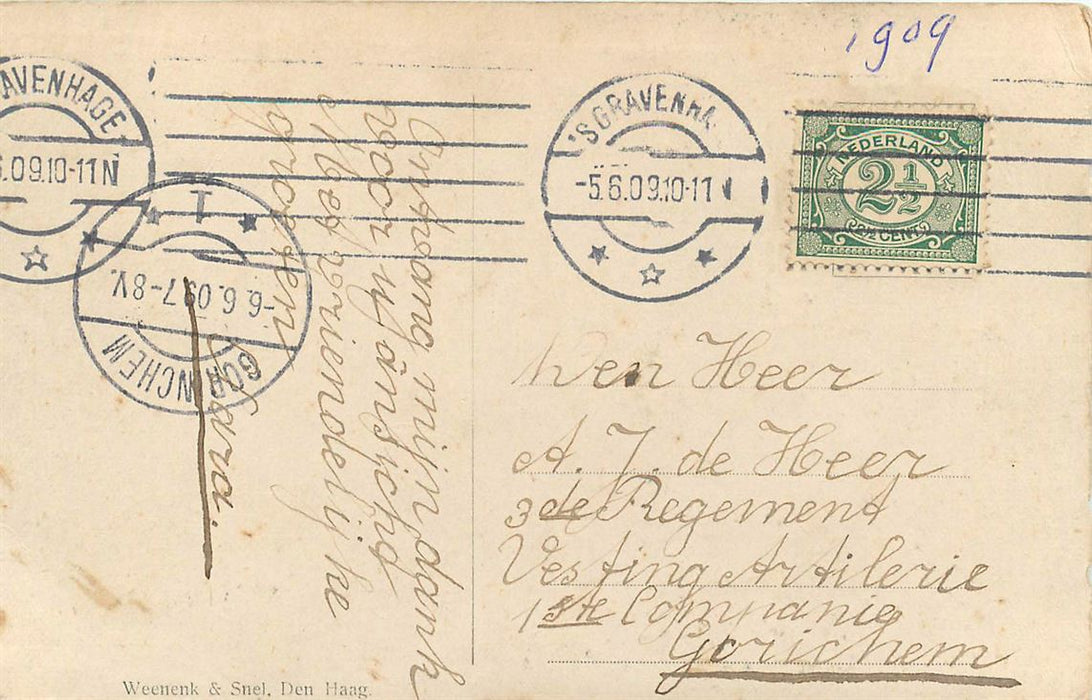 1909
'S GRAVENHAGE
5.6.09.10-11 N
'S GRAVENHA
-5.6.09.10-11
NEDERLAND
2½
CENT
1
-6.6.09 7-8V.
GORINCHEM
Ontvang mijn dank
voor uw ansicht
Met vriendelijke
groeten
Sara.
Den Heer
A. J. de Heer
3de Regement
Vesting Artilerie
1ste Companie
Gorichem
Weenenk & Snel, Den Haag.